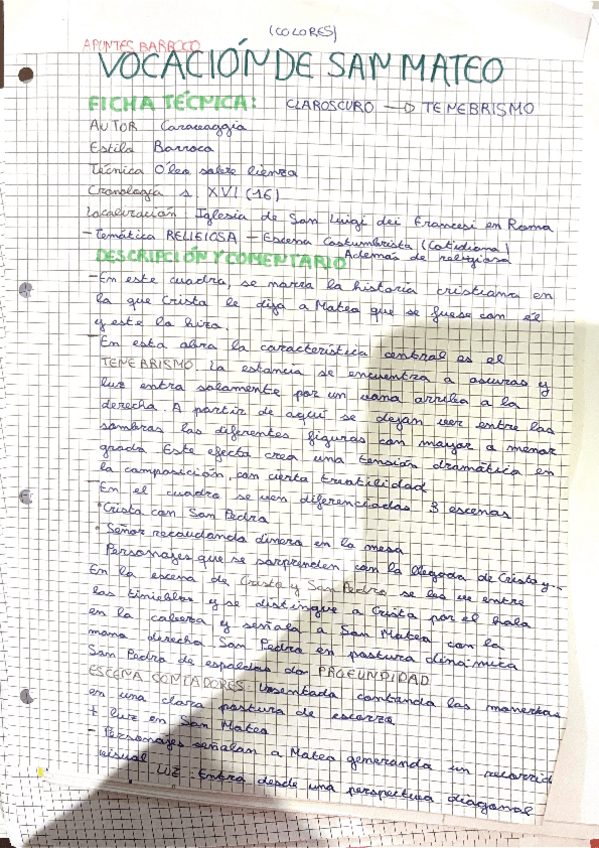 (COLORES)
APUNTES BARROCO
VOCACIÓN DE SAN MATEO
FICHA TÉCNICA: CLAROSCURO → TENEBRISMO
AUTOR Caravaggio
Estilo Barroco
Técnica Óleo sobre lienzo
Cronología s. XVI (16)
Localización Iglesia de San Luigi dei Francesi en Roma
- Temática RELIGIOSA - Escena Costumbrista (Cotidiana)
Además de religiosa
DESCRIPCIÓN Y COMENTARIO
- En este cuadro, se narra la historia cristiana en
la que Cristo le dijo a Mateo que se fuese con él
y este lo hizo.
- En esta obra la característica central es el
TENEBRISMO. La estancia se encuentra a oscuras y
luz entra solamente por un vano arriba a la
derecha. A partir de aquí se dejan ver entre las
sombras las diferentes figuras con mayor o menor
grado. Este efecto crea una tensión dramática en
la composición, con cierta teatralidad
- En el cuadro se ven diferenciadas 3 escenas
• Cristo con San Pedro
• Señor recaudando dinero en la mesa
Personajes que se sorprenden con la llegada de Cristo y...
En la escena de Cristo y San Pedro se les ve entre
las tinieblas y se distingue a Cristo por el halo
en la cabeza y señala a San Mateo con la
mano derecha San Pedro en postura dinámica
San Pedro de espaldas da PROFUNDIDAD
ESCENA CONTADORES: Uno sentado contando las monedas
en una clara postura de escorzo
+ luz en San Mateo
- Personajes señalan a Mateo generando un recorrido
visual LUZ: Entra desde una perspectiva diagonal